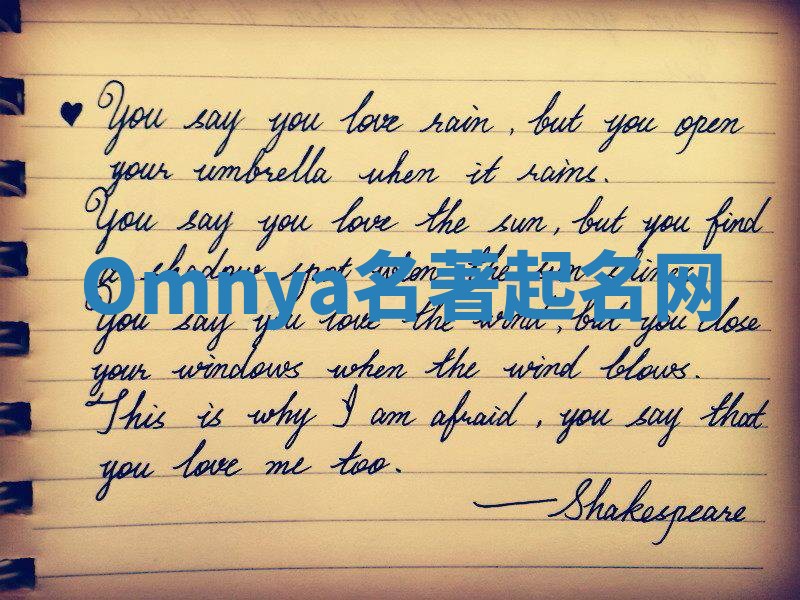 ♥ You say you love rain, but you open
your umbrella when it rains.
You say you love the sun, but you find
a shadow spot when the sun shines.
Omnya名著起名网
You say you love the wind, but you close
your windows when the wind blows.
This is why I am afraid, you say that
you love me too.
—Shakespeare